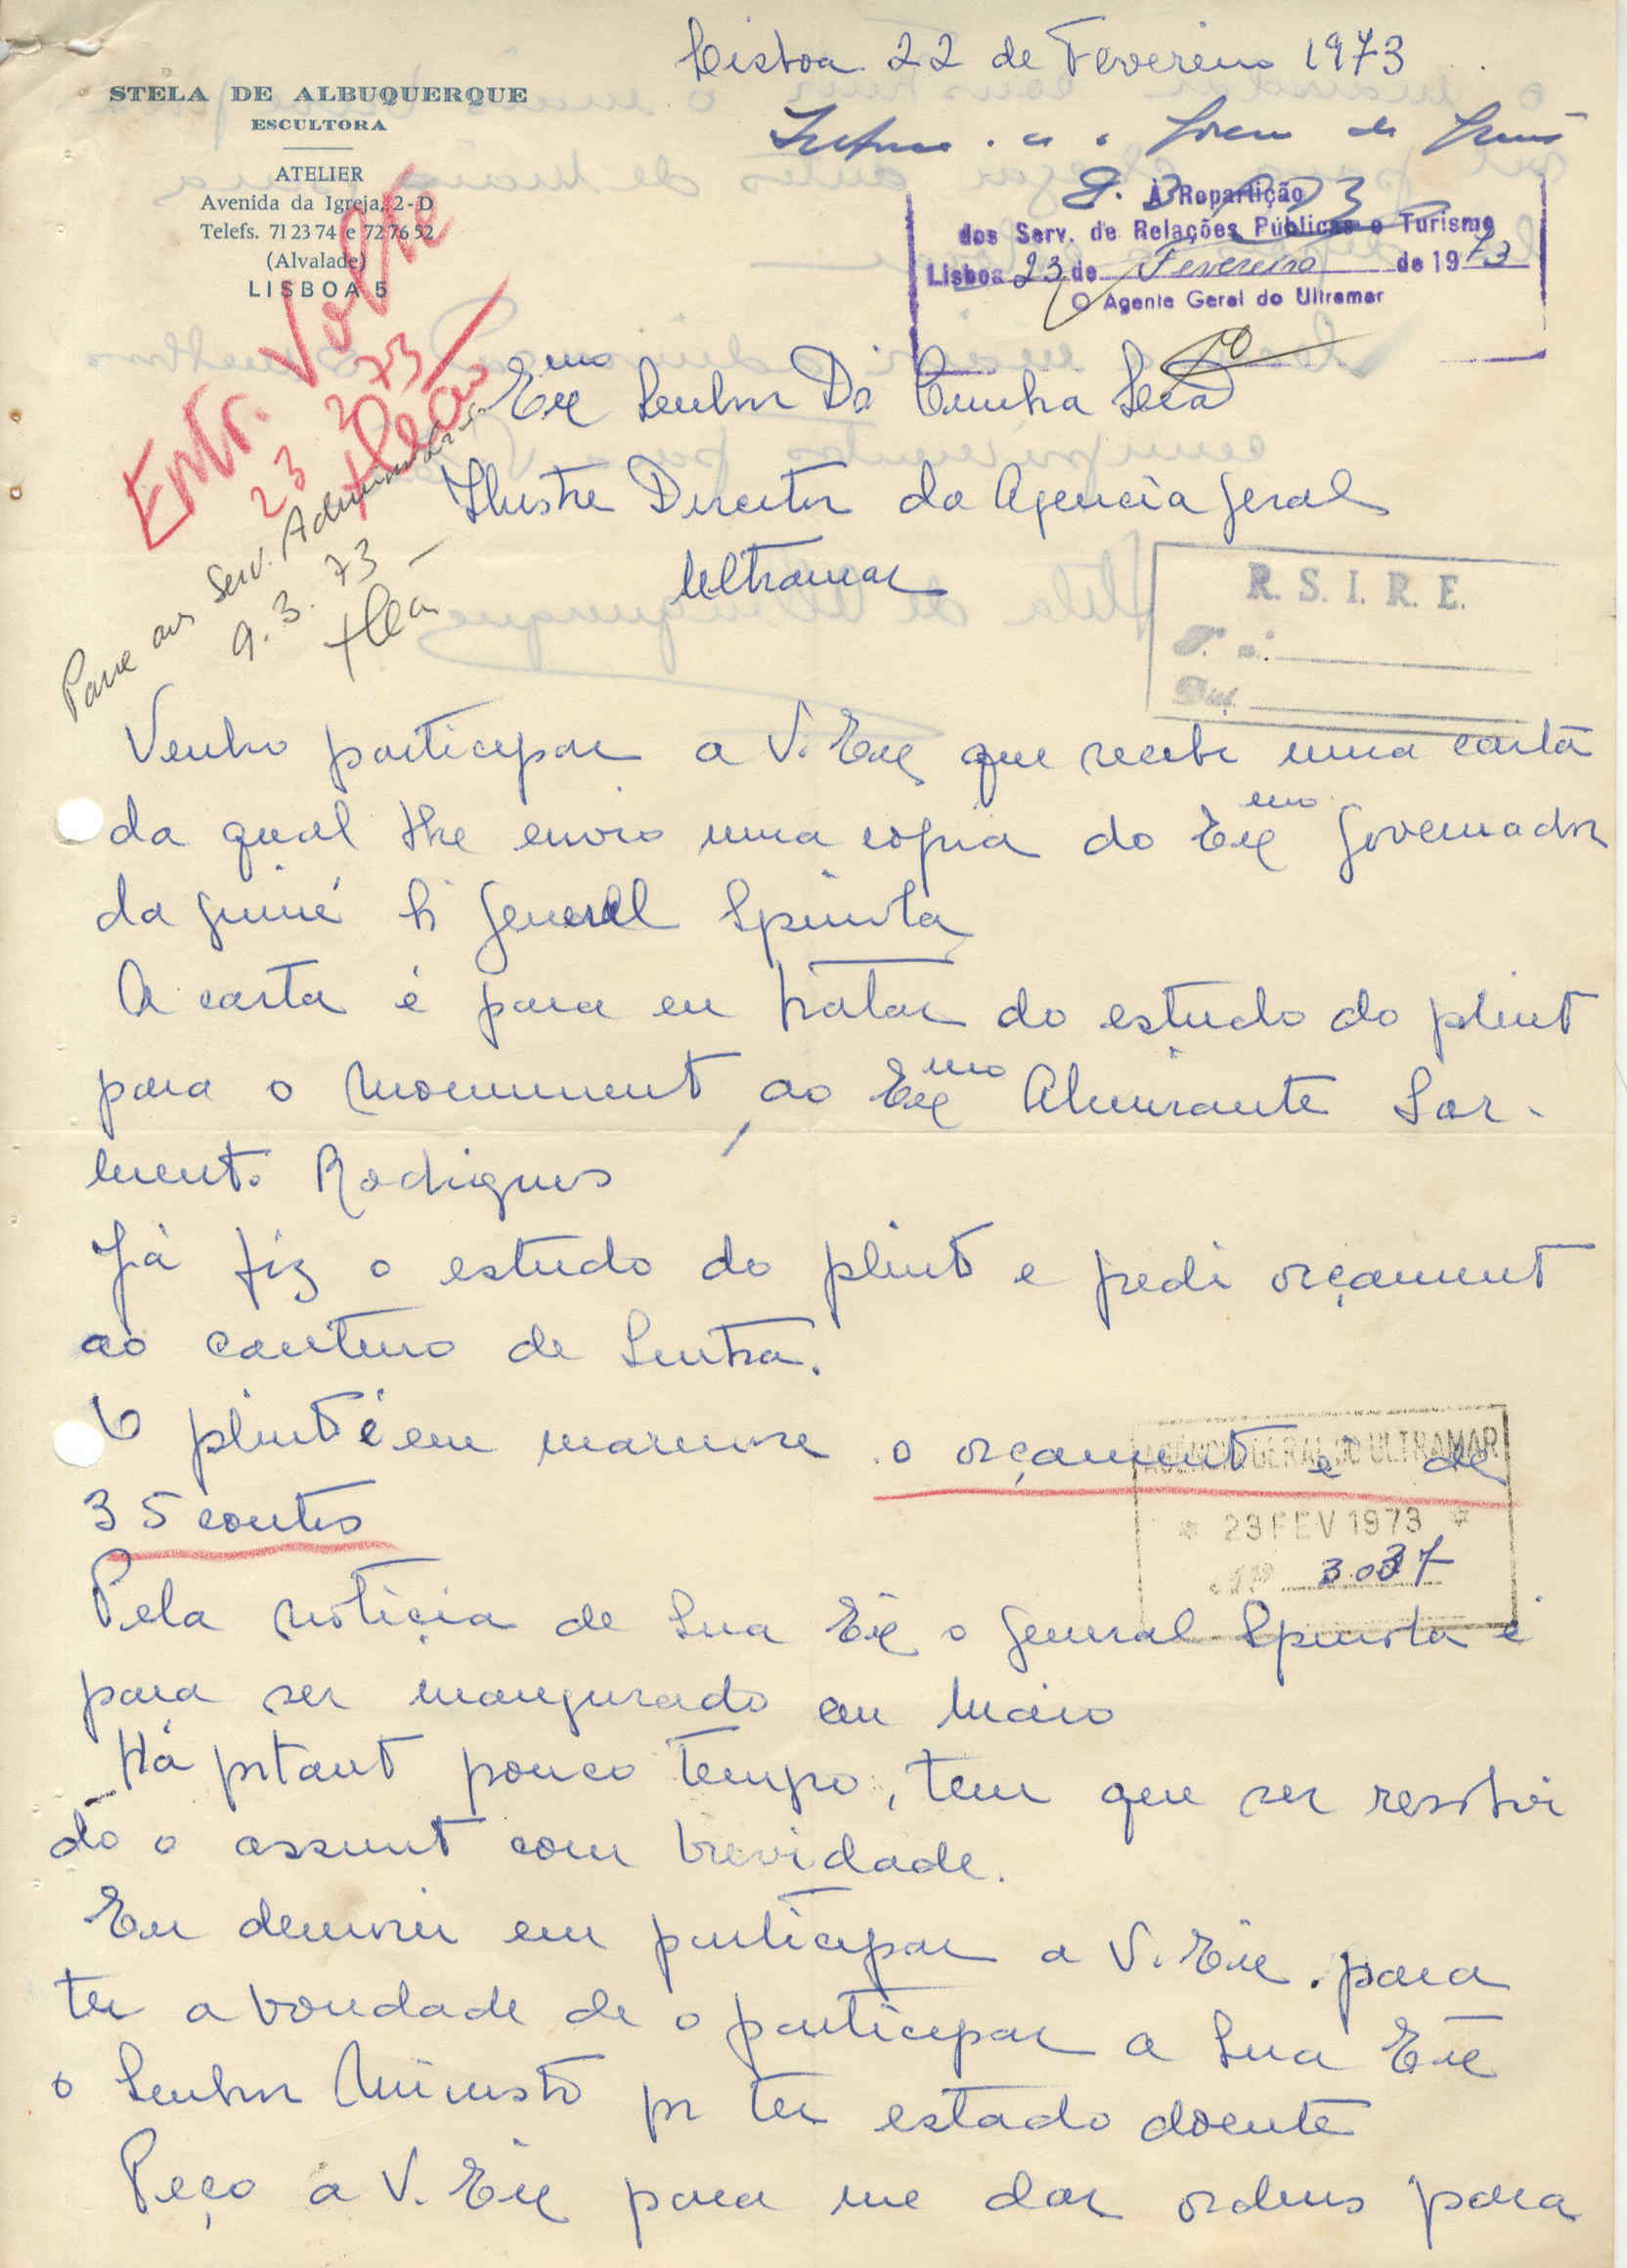 Lisboa 22 de Fevereiro 1973
STELA DE ALBUQUERQUE
ESCULTORA
ATELIER
Avenida da Igreja, 2-D
Telefs. 71 23 74 e 72 76 52
(Alvalade)
LISBOA 5
À Repartição
dos Serv. de Relações Públicas e Turismo
Lisboa 23 de Fevereiro de 1973
O Agente Geral do Ultramar
Entr. Volte
23 2 73
Passe aos Serv. Administ.
9.3.73
Exmo Senhor Dr Cunha
Ilustre Director da Agencia Geral
Ultramar
R. S. I. R. E.
Venho participar a V. Exª que recebi uma carta
da qual lhe envio uma copia do Exmo Governador
da Guiné Sr General Spinola
A carta é para eu tratar do estudo do plinto
para o monumento ao Exmo Almirante Sar-
mento Rodrigues
Já fiz o estudo do plinto e pedi orçamento
ao canteiro de Sintra.
O plinto é em marmore o orçamento é de
35 contos
AGÊNCIA GERAL DO ULTRAMAR
* 23 FEV 1973 *
Nº 3.037
Pela noticia de Sua Exª o General Spinola é
para ser inaugurado em Maio
Há portanto pouco tempo, tem que ser resolvi
do o assunto com brevidade.
Eu demorei em participar a V. Exª. para
ter a bondade de o participar a Sua Exª
o Senhor Ministro por ter estado doente
Peço a V. Exª para me dar ordens para